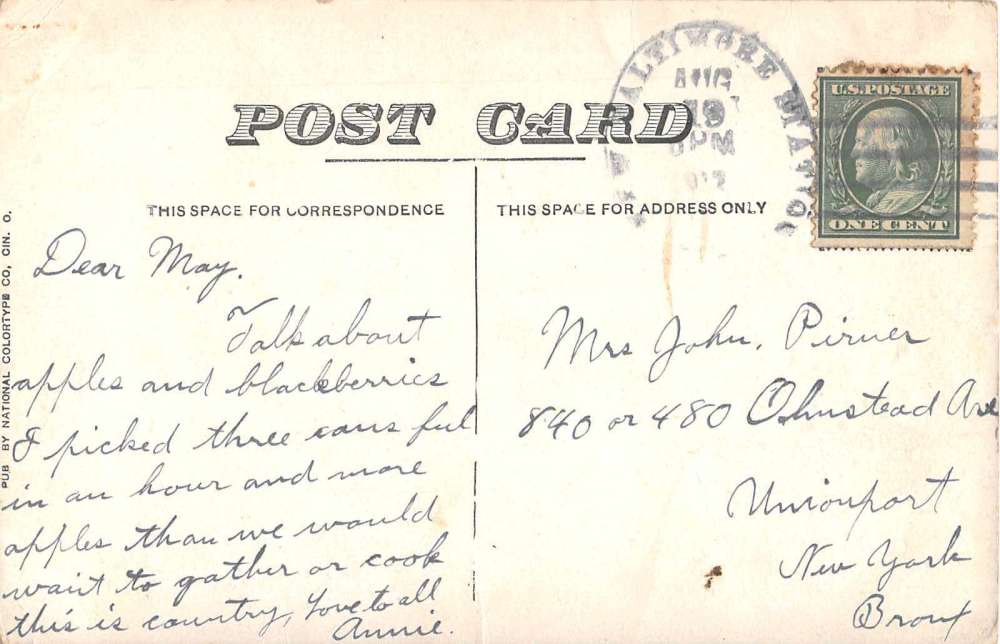 POST CARD
THIS SPACE FOR CORRESPONDENCE
THIS SPACE FOR ADDRESS ONLY
BALTIMORE STATION
AUG
19
PM
U.S. POSTAGE
ONE CENT
PUB BY NATIONAL COLORTYPE CO, CIN. O.
Dear May.
Talk about
apples and blackberries
I picked three cans ful
in an hour and more
apples than we would
want to gather or cook
this is country, Love to all
Annie.
Mrs John, Pirner
840 or 480 Ohmstead Ave
Unionport
New York
Bronx